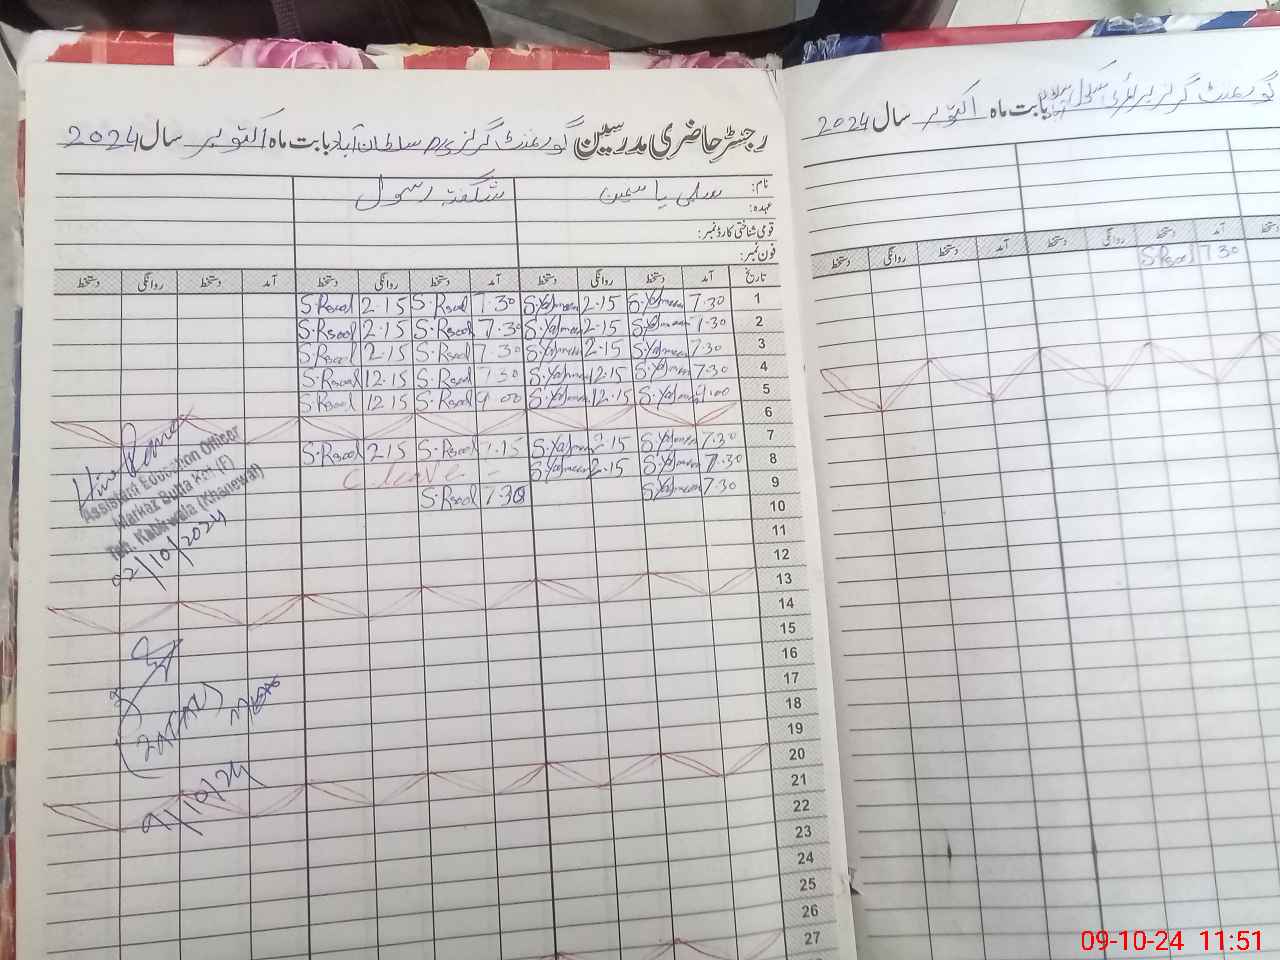 رجسٹر حاضری مدرسین گورنمنٹ گرلز سلطان آباد بابت ماہ اکتوبر سال 2024
نام: سلمی یاسمین شگفتہ رسول
عہدہ:
قومی شناختی کارڈ نمبر:
فون نمبر:
تاریخ آمد دستخط روانگی دستخط آمد دستخط روانگی دستخط آمد دستخط روانگی دستخط
1 7.30 S.Yasmeen 2.15 S.Yasmeen 7.30 S.Rsool 2.15 S.Rsool
2 7.30 S.Yasmeen 2.15 S.Yasmeen 7.30 S.Rsool 2.15 S.Rsool
3 7.30 S.Yasmeen 2.15 S.Yasmeen 7.30 S.Rsool 2.15 S.Rsool
4 7.30 S.Yasmeen 12.15 S.Yasmeen 7.30 S.Rsool 12.15 S.Rsool
5 9.00 S.Yasmeen 12.15 S.Yasmeen 9.00 S.Rsool 12.15 S.Rsool
6
7 7.30 S.Yasmeen 2.15 S.Yasmeen 7.15 S.Rsool 2.15 S.Rsool
8 7.30 S.Yasmeen 2.15 S.Yasmeen C leave
9 7.30 S.Yasmeen 7.30 S.Rsool
10
11
12
13
14
15
16
17
18
19
20
21
22
23
24
25
26
27
Assistant Education Officer
Markaz Butta Kot (F)
Teh. Kabirwala (Khanewal)
02/10/2024
9/10/24
گورنمنٹ گرلز پرائمری سکول بابت ماہ اکتوبر سال 2024
دستخط آمد دستخط روانگی دستخط آمد دستخط روانگی دستخط
7.30 S.Rsool
09-10-24 11:51